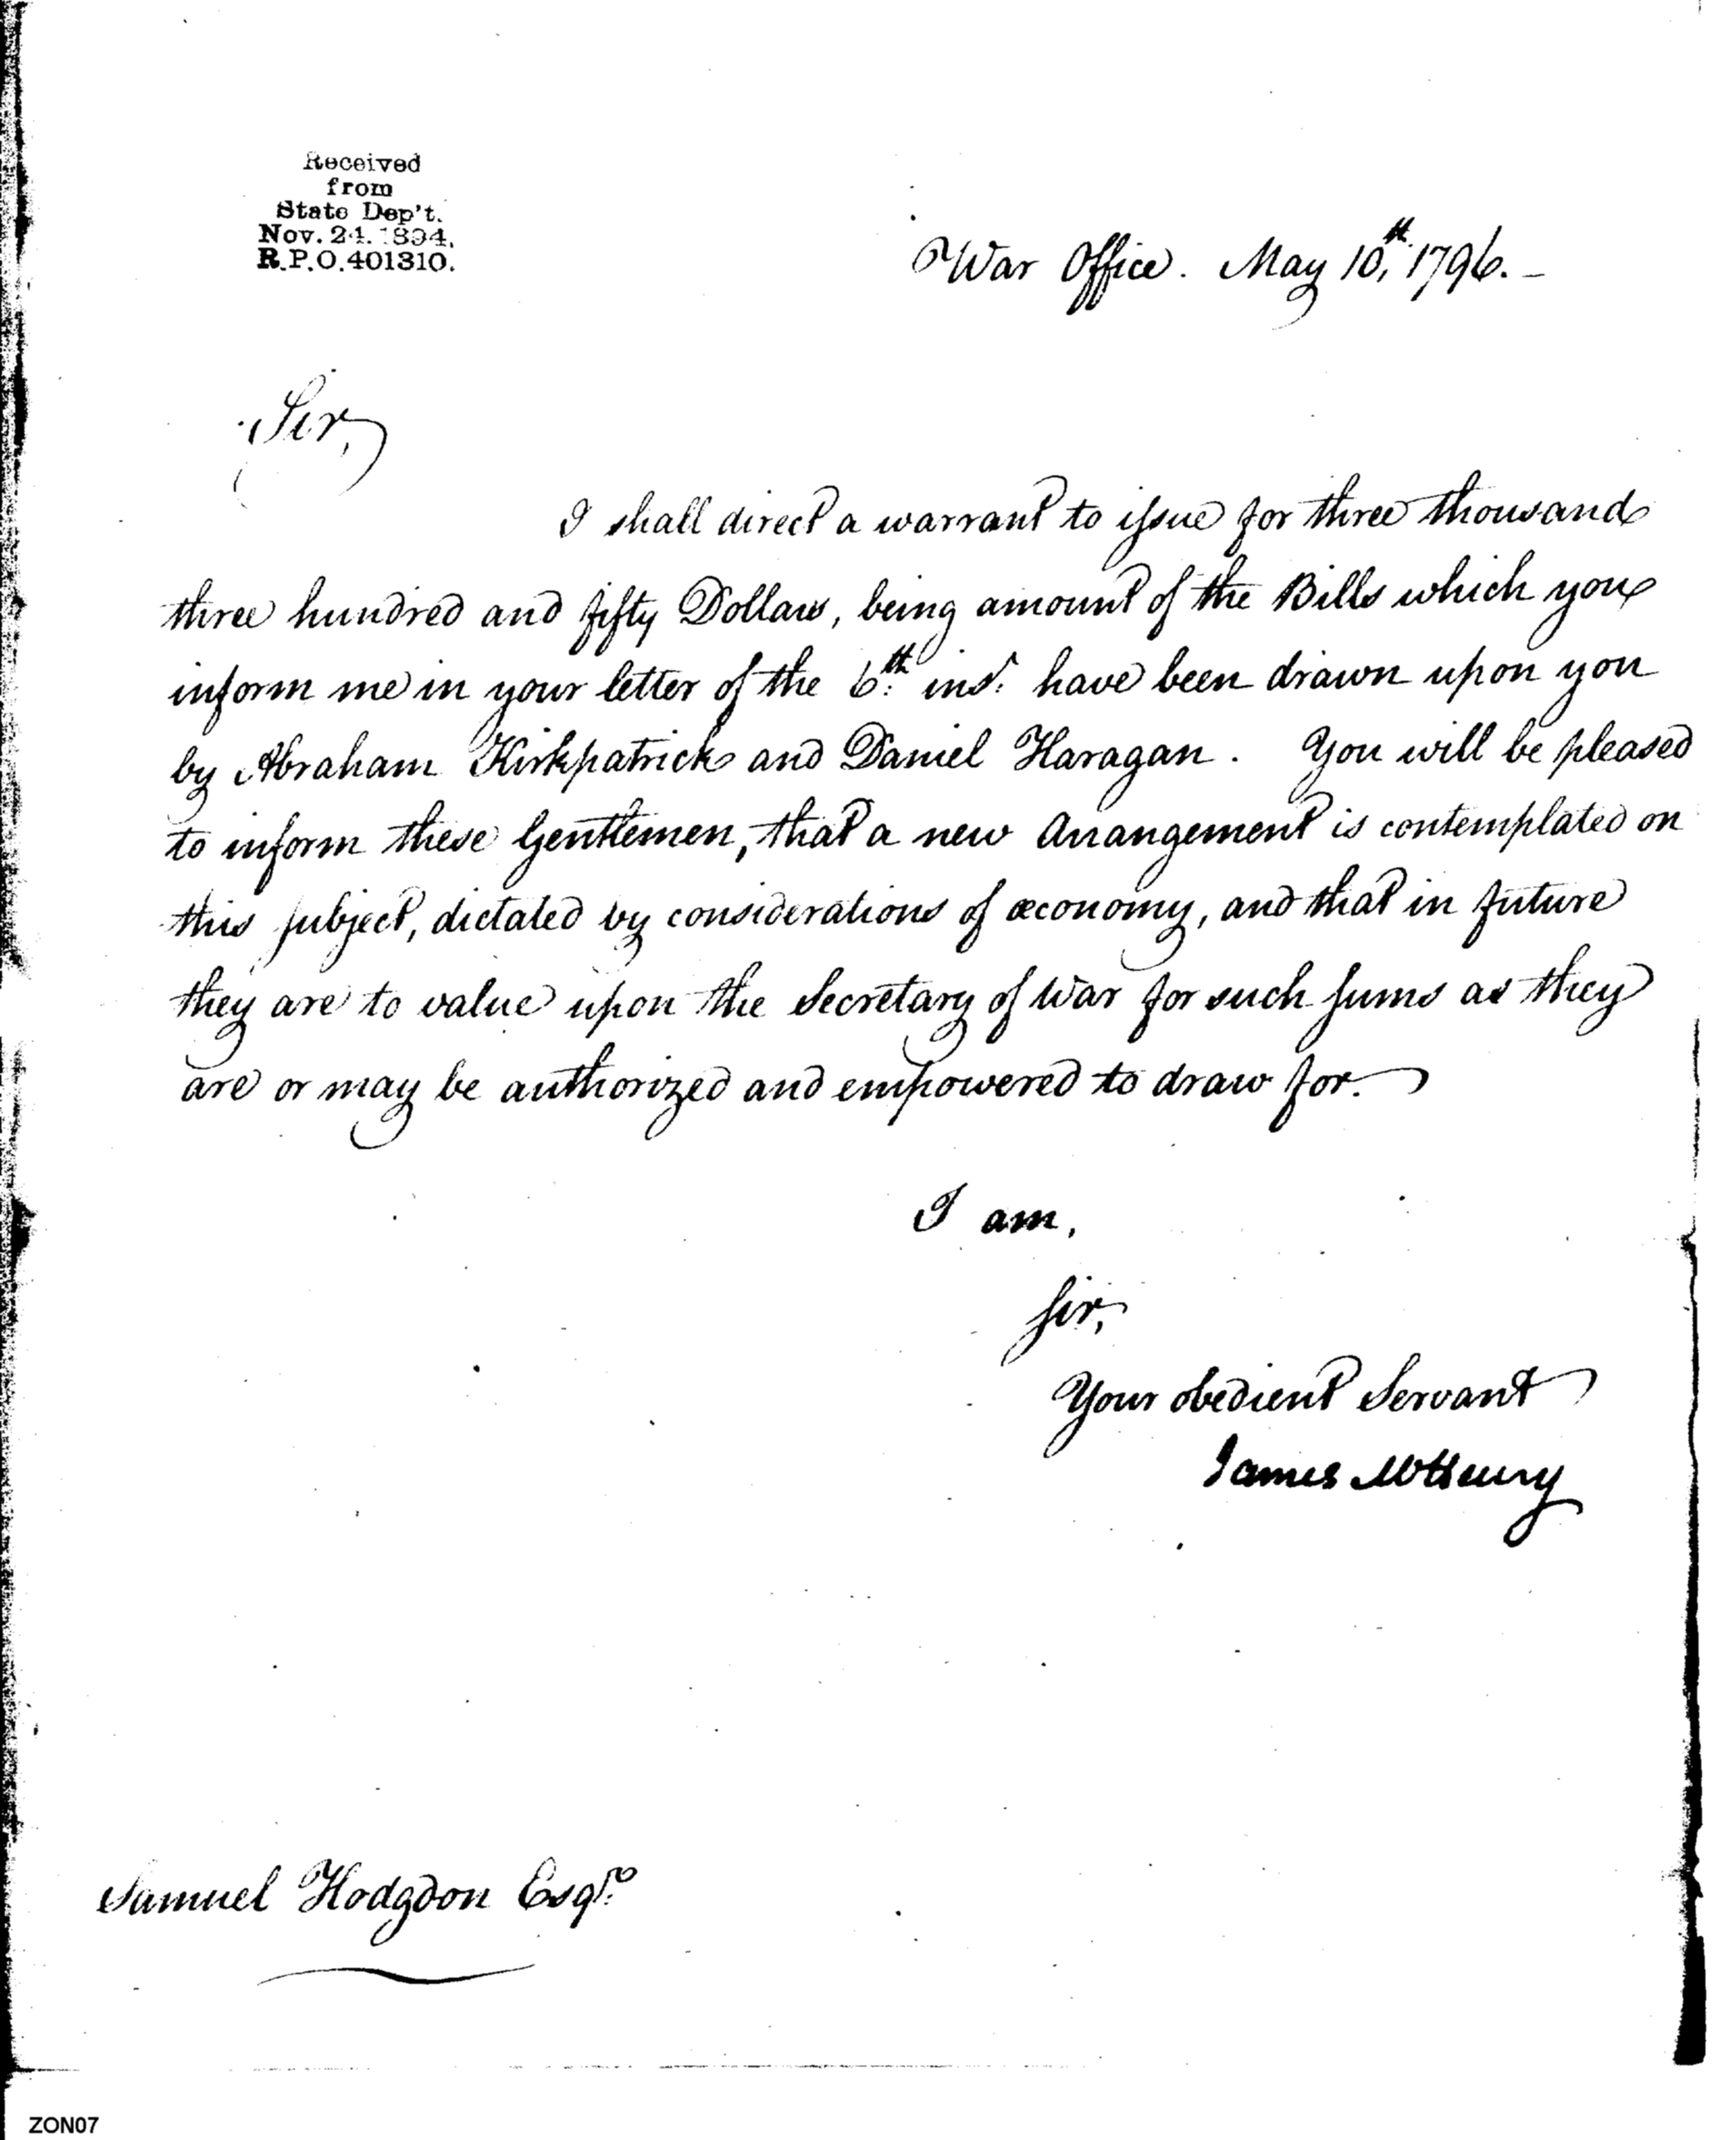 Received
from
State Dep't.
Nov. 24. 1894.
R.P.O. 401310.
War Office. May 10th, 1796. –
Sir,
I shall direct a warrant to issue for three thousand
three hundred and fifty Dollars, being amount of the Bills which you
inform me in your letter of the 6th inst. have been drawn upon you
by Abraham Kirkpatrick and Daniel Haragan. You will be pleased
to inform these Gentlemen, that a new Arrangement is contemplated on
this subject, dictated by considerations of œconomy, and that in future
they are to value upon the Secretary of War for such sums as they
are or may be authorized and empowered to draw for.
I am,
Sir,
Your obedient Servant
James McHenry
Samuel Hodgdon Esqre.
ZON07